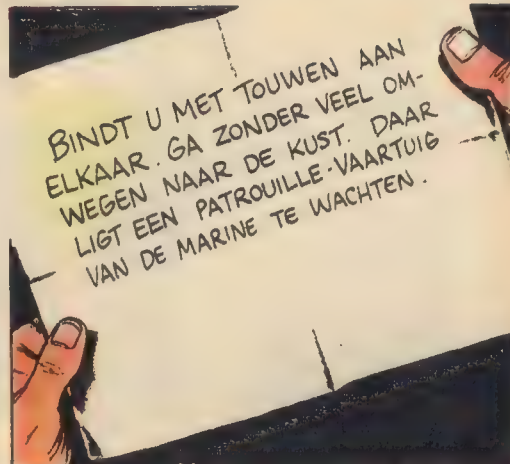 BINDT U MET TOUWEN AAN
ELKAAR. GA ZONDER VEEL OM-
WEGEN NAAR DE KUST. DAAR
LIGT EEN PATROUILLE-VAARTUIG
VAN DE MARINE TE WACHTEN.